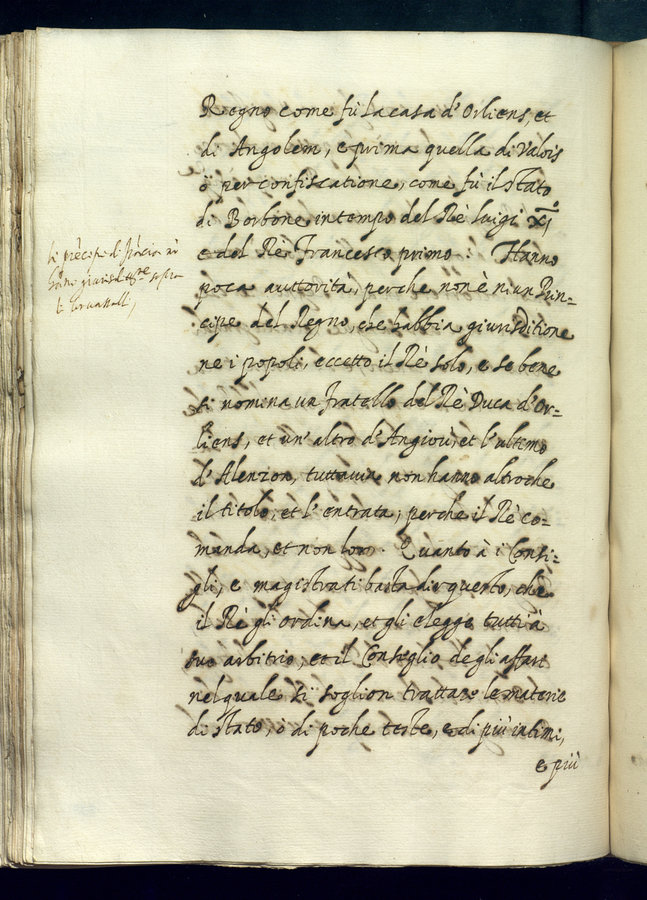 Regno come fù la casa d'Orliens, et
di Angolem, e prima quella di Valois
ò per confiscatione, come fù il stato
di Borbone in tempo del Rè luigi XI.º
e del Rè Francesco primo: Hanno
poca auttorità, perche non è niun Prin-
cipe del Regno, che habbia giurisditione
ne i popoli, eccetto il Rè solo, e se bene
si nomina un fratello del Rè Duca d'Or-
liens, et un' altro d'Angiou, et l'ultimo
d'Alenzon, tuttavia non hanno altro che
il titolo, et l'entrata, perche il Rè co-
manda, et non loro. Quanto à i Consi-
gli, e magistrati basta dir questo, che
il Rè gli ordina, et gli elegge tutti à
suo arbitrio, et il Conseglio degli affari
nel quale si soglion trattare le materie
di stato, è di poche teste, e di più intimi,
e più
li prēcipi di frācia nō